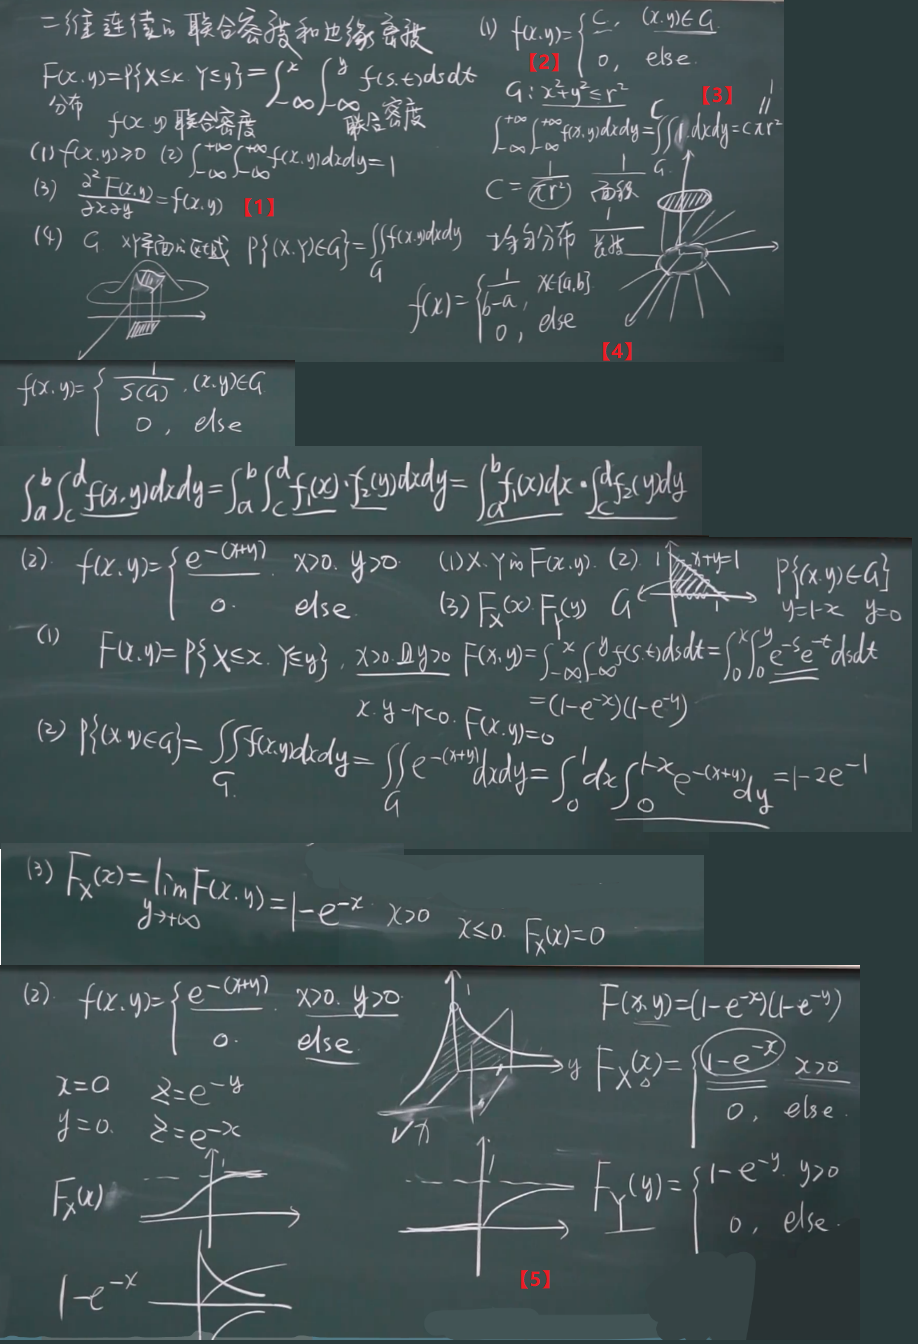 二维连续的联合密度和边缘密度
F(x.y)=P{X≤x. Y≤y}=∫_{-∞}^{x}∫_{-∞}^{y} f(s.t)dsdt
分布 联合密度
f(x y) 联合密度
(1) f(x.y)≥0 (2) ∫_{-∞}^{+∞}∫_{-∞}^{+∞} f(x.y)dxdy=1
(3) ∂²F(x.y)/∂x∂y=f(x.y) 【1】
(4) G XY平面的区域 P{(X.Y)∈G}=∬_G f(x.y)dxdy
(1) f(x.y)={C, (x.y)∈G
0, else.
【2】
G: x²+y²≤r² 【3】
1
∫_{-∞}^{+∞}∫_{-∞}^{+∞} f(x.y)dxdy=∬_G C.dxdy=cπr²
C=1/πr² 1/面积
均匀分布 1/长度
f(x)={1/(b-a), x∈[a,b]
0, else
【4】
f(x.y)={1/S(G) .(x.y)∈G
0, else
∫_a^b∫_c^d f(x.y)dxdy=∫_a^b∫_c^d f₁(x)·f₂(y)dxdy=∫_a^b f₁(x)dx·∫_c^d f₂(y)dy
(2). f(x.y)={e^{-(x+y)}. x>0. y>0.
0. else.
(1)X.Y的F(x.y). (2). 1 x+y=1 1 G P{(x.y)∈G}
(3) F_X(x) F_Y(y) y=1-x y=0
(1) F(x.y)=P{X≤x. Y≤y}. x>0.且y>0 F(x.y)=∫_{-∞}^{x}∫_{-∞}^{y} f(s.t)dsdt=∫_0^x∫_0^y e^{-s}e^{-t}dsdt
=(1-e^{-x})(1-e^{-y})
x.y一个<0. F(x.y)=0
(2) P{(X.Y)∈G}=∬_G f(x.y)dxdy=∬_G e^{-(x+y)}dxdy=∫_0^1dx∫_0^{1-x}e^{-(x+y)}dy=1-2e^{-1}
(3) F_X(x)=lim_{y→+∞}F(x.y)=1-e^{-x}. x>0 x≤0. F_X(x)=0
(2). f(x.y)={e^{-(x+y)}. x>0. y>0.
0. else.
1
y
x
F(x.y)=(1-e^{-x})(1-e^{-y})
F_X(x)={1-e^{-x} x>0
0, else.
x=0 z=e^{-y}
y=0. z=e^{-x}
F_X(x) 1
1
F_Y(y)={1-e^{-y}. y>0
0, else.
1-e^{-x}
【5】